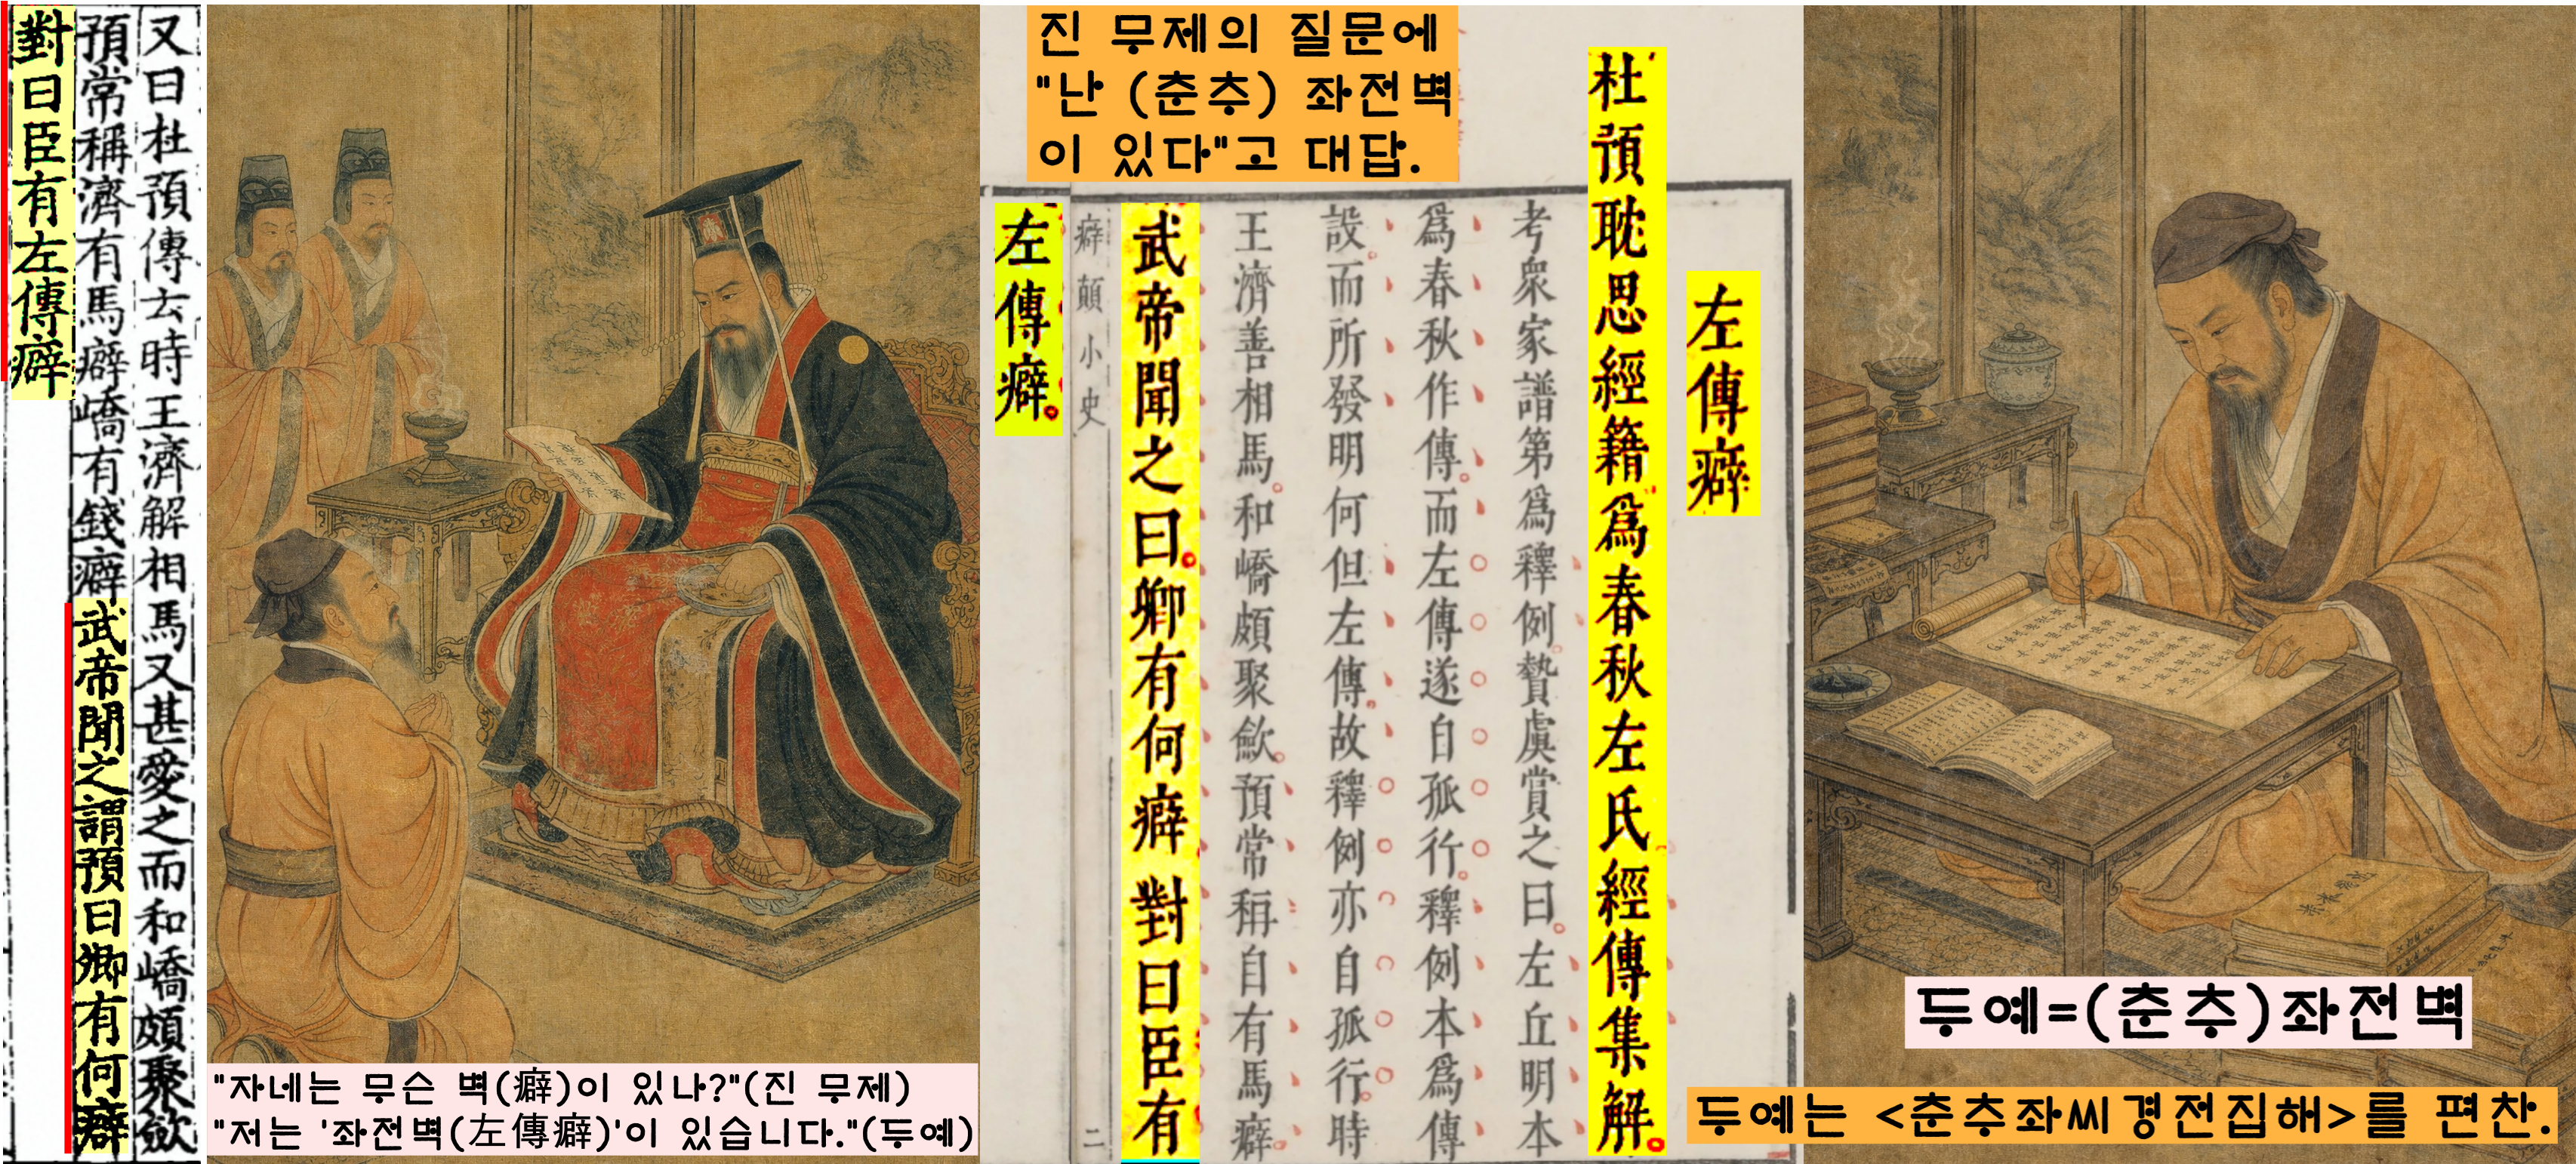 又曰杜預傳云時王濟解相馬又甚愛之而和嶠頗聚斂
預常稱濟有馬癖嶠有錢癖武帝聞之謂預曰卿有何癖
對曰臣有左傳癖
"자네는 무슨 벽(癖)이 있나?"(진 무제)
"저는 '좌전벽(左傳癖)'이 있습니다."(두예)
진 무제의 질문에
"난 (춘추) 좌전벽
이 있다"고 대답.
左傳癖
杜預耽思經籍爲春秋左氏經傳集解。
考衆家譜第爲釋例。贄虞賞之曰。左丘明本
爲春秋作傳。而左傳遂自孤行。釋例本爲傳
設。而所發明何但左傳。故釋例亦自孤行。時
王濟善相馬。和嶠頗聚斂。預常稱自有馬癖。
武帝聞之曰。卿有何癖對曰臣有
癖顛小史
二
左傳癖。
두예=(춘추)좌전벽
두예는 <춘추좌씨경전집해>를 편찬.